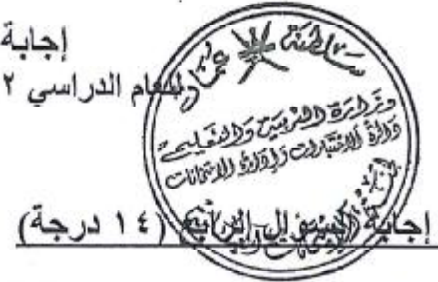 إجابة
للعام الدراسي ٢
سلطنة عمان
وزارة التربية والتعليم
دائرة الاختبارات وإدارة الامتحانات
إجابة السؤال الرابع (١٤ درجة)